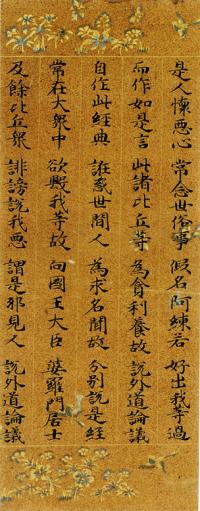 是人懷惡心 常念世俗事 假名阿練若 好出我等過
而作如是言 此諸比丘等 為貪利養故 說外道論議
自作此經典 誑惑世間人 為求名聞故 分別說是經
常在大眾中 欲毀我等故 向國王大臣 婆羅門居士
及餘比丘眾 誹謗說我惡 謂是邪見人 說外道論議